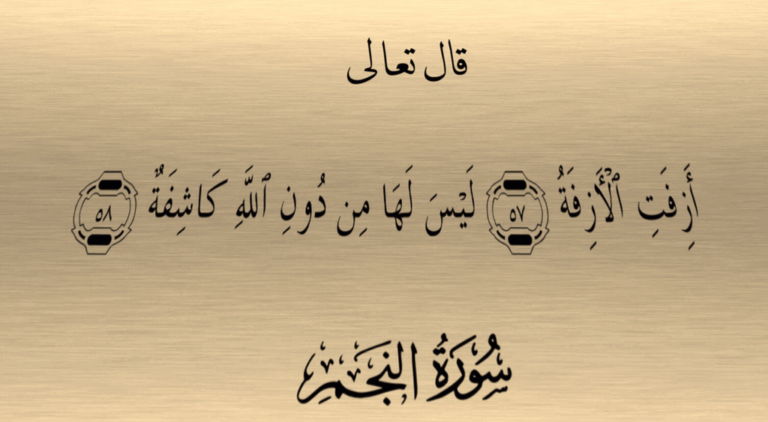 قال تعالى
أَزِفَتِ ٱلْأَزِفَةُ ٥٧ لَيْسَ لَهَا مِن دُونِ ٱللَّهِ كَاشِفَةٌ ٥٨
سُورَةُ النَّجْمِ